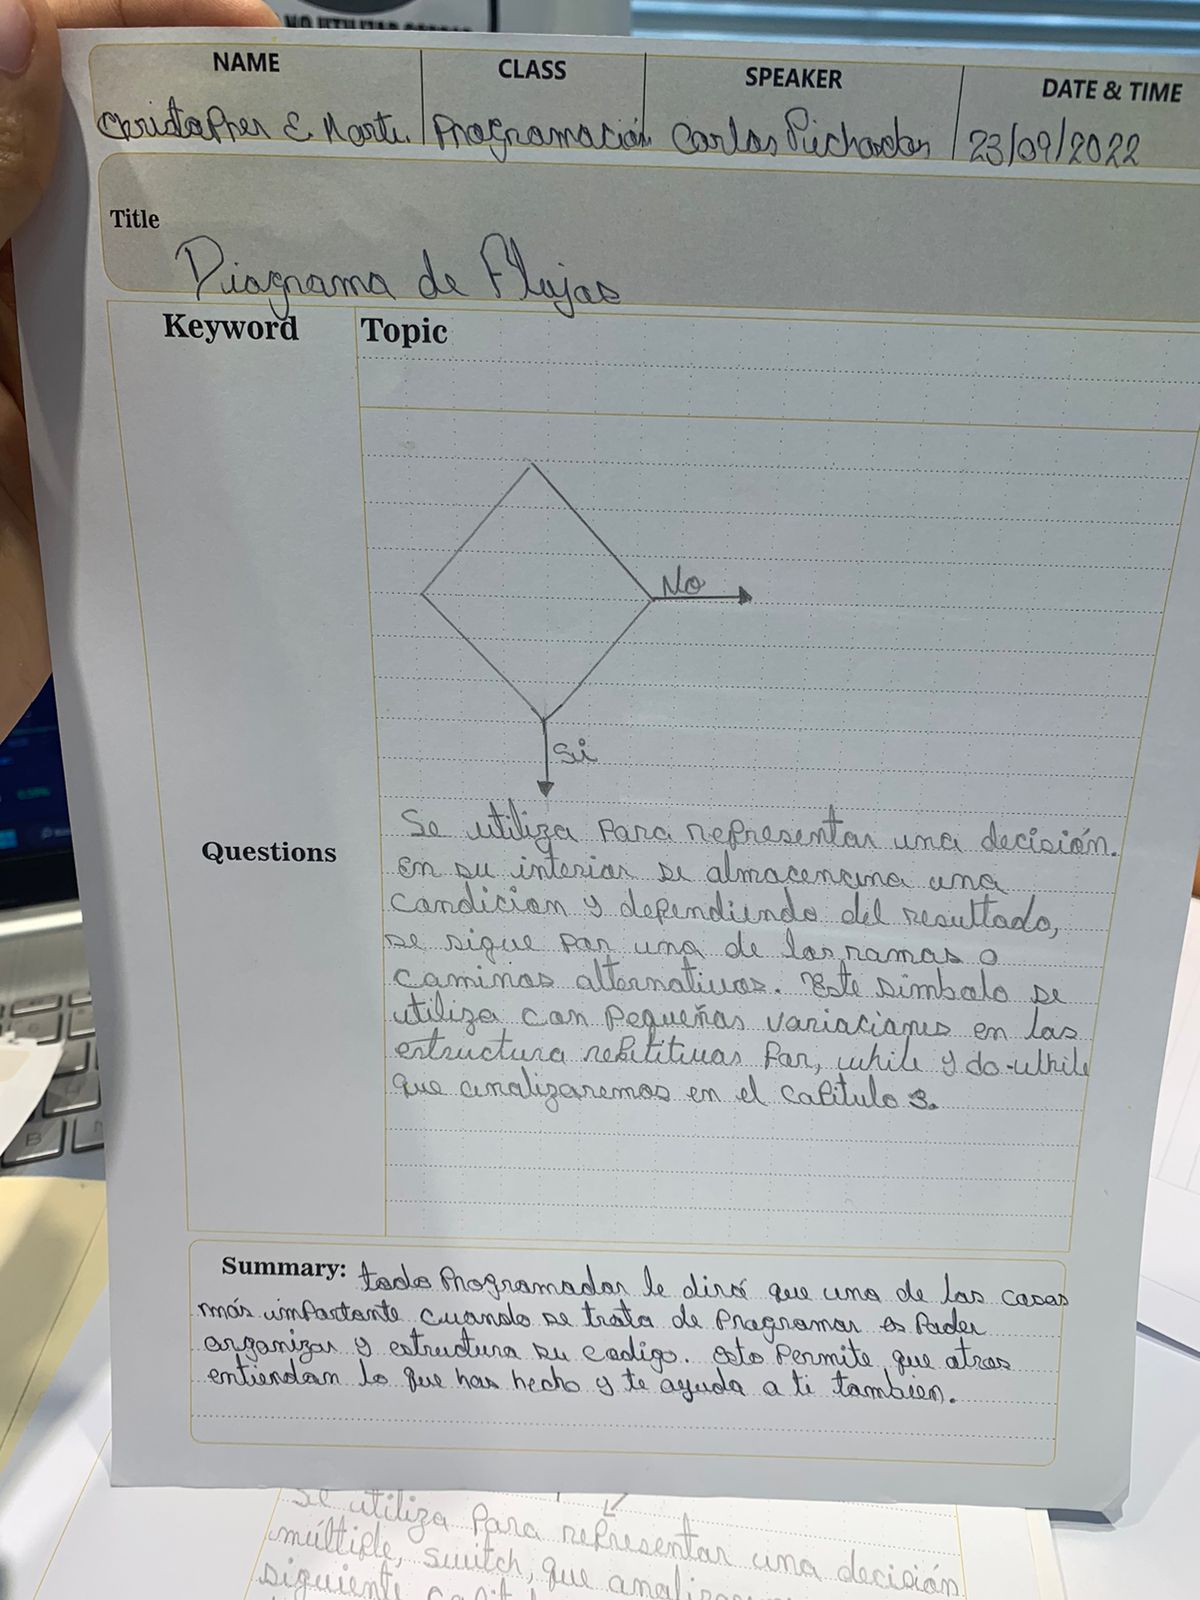 NO UTILIZAR
NAME CLASS SPEAKER DATE & TIME
Christopher E. Marte. Programación Carlos Pichardo 23/09/2022
Title
Diagrama de Flujos
Keyword Topic
No
Si
Questions
Se utiliza para representar una decisión.
En su interior se almacenana una
condicion y dependiendo del resultado,
se sigue por una de las ramas o
caminos alternativos. Este simbolo se
utiliza con pequeñas variaciones en las
estructura repetitivas for, while y do-while
que analizaremos en el capitulo 3.
Summary: todo programador le dirá que una de las cosas
más importante cuando se trata de programar es poder
organizar y estructura su codigo. esto permite que otros
entiendan lo que has hecho y te ayuda a ti tambien.
se utiliza para representar una decisión
múltiple, switch, que
siguiente
B